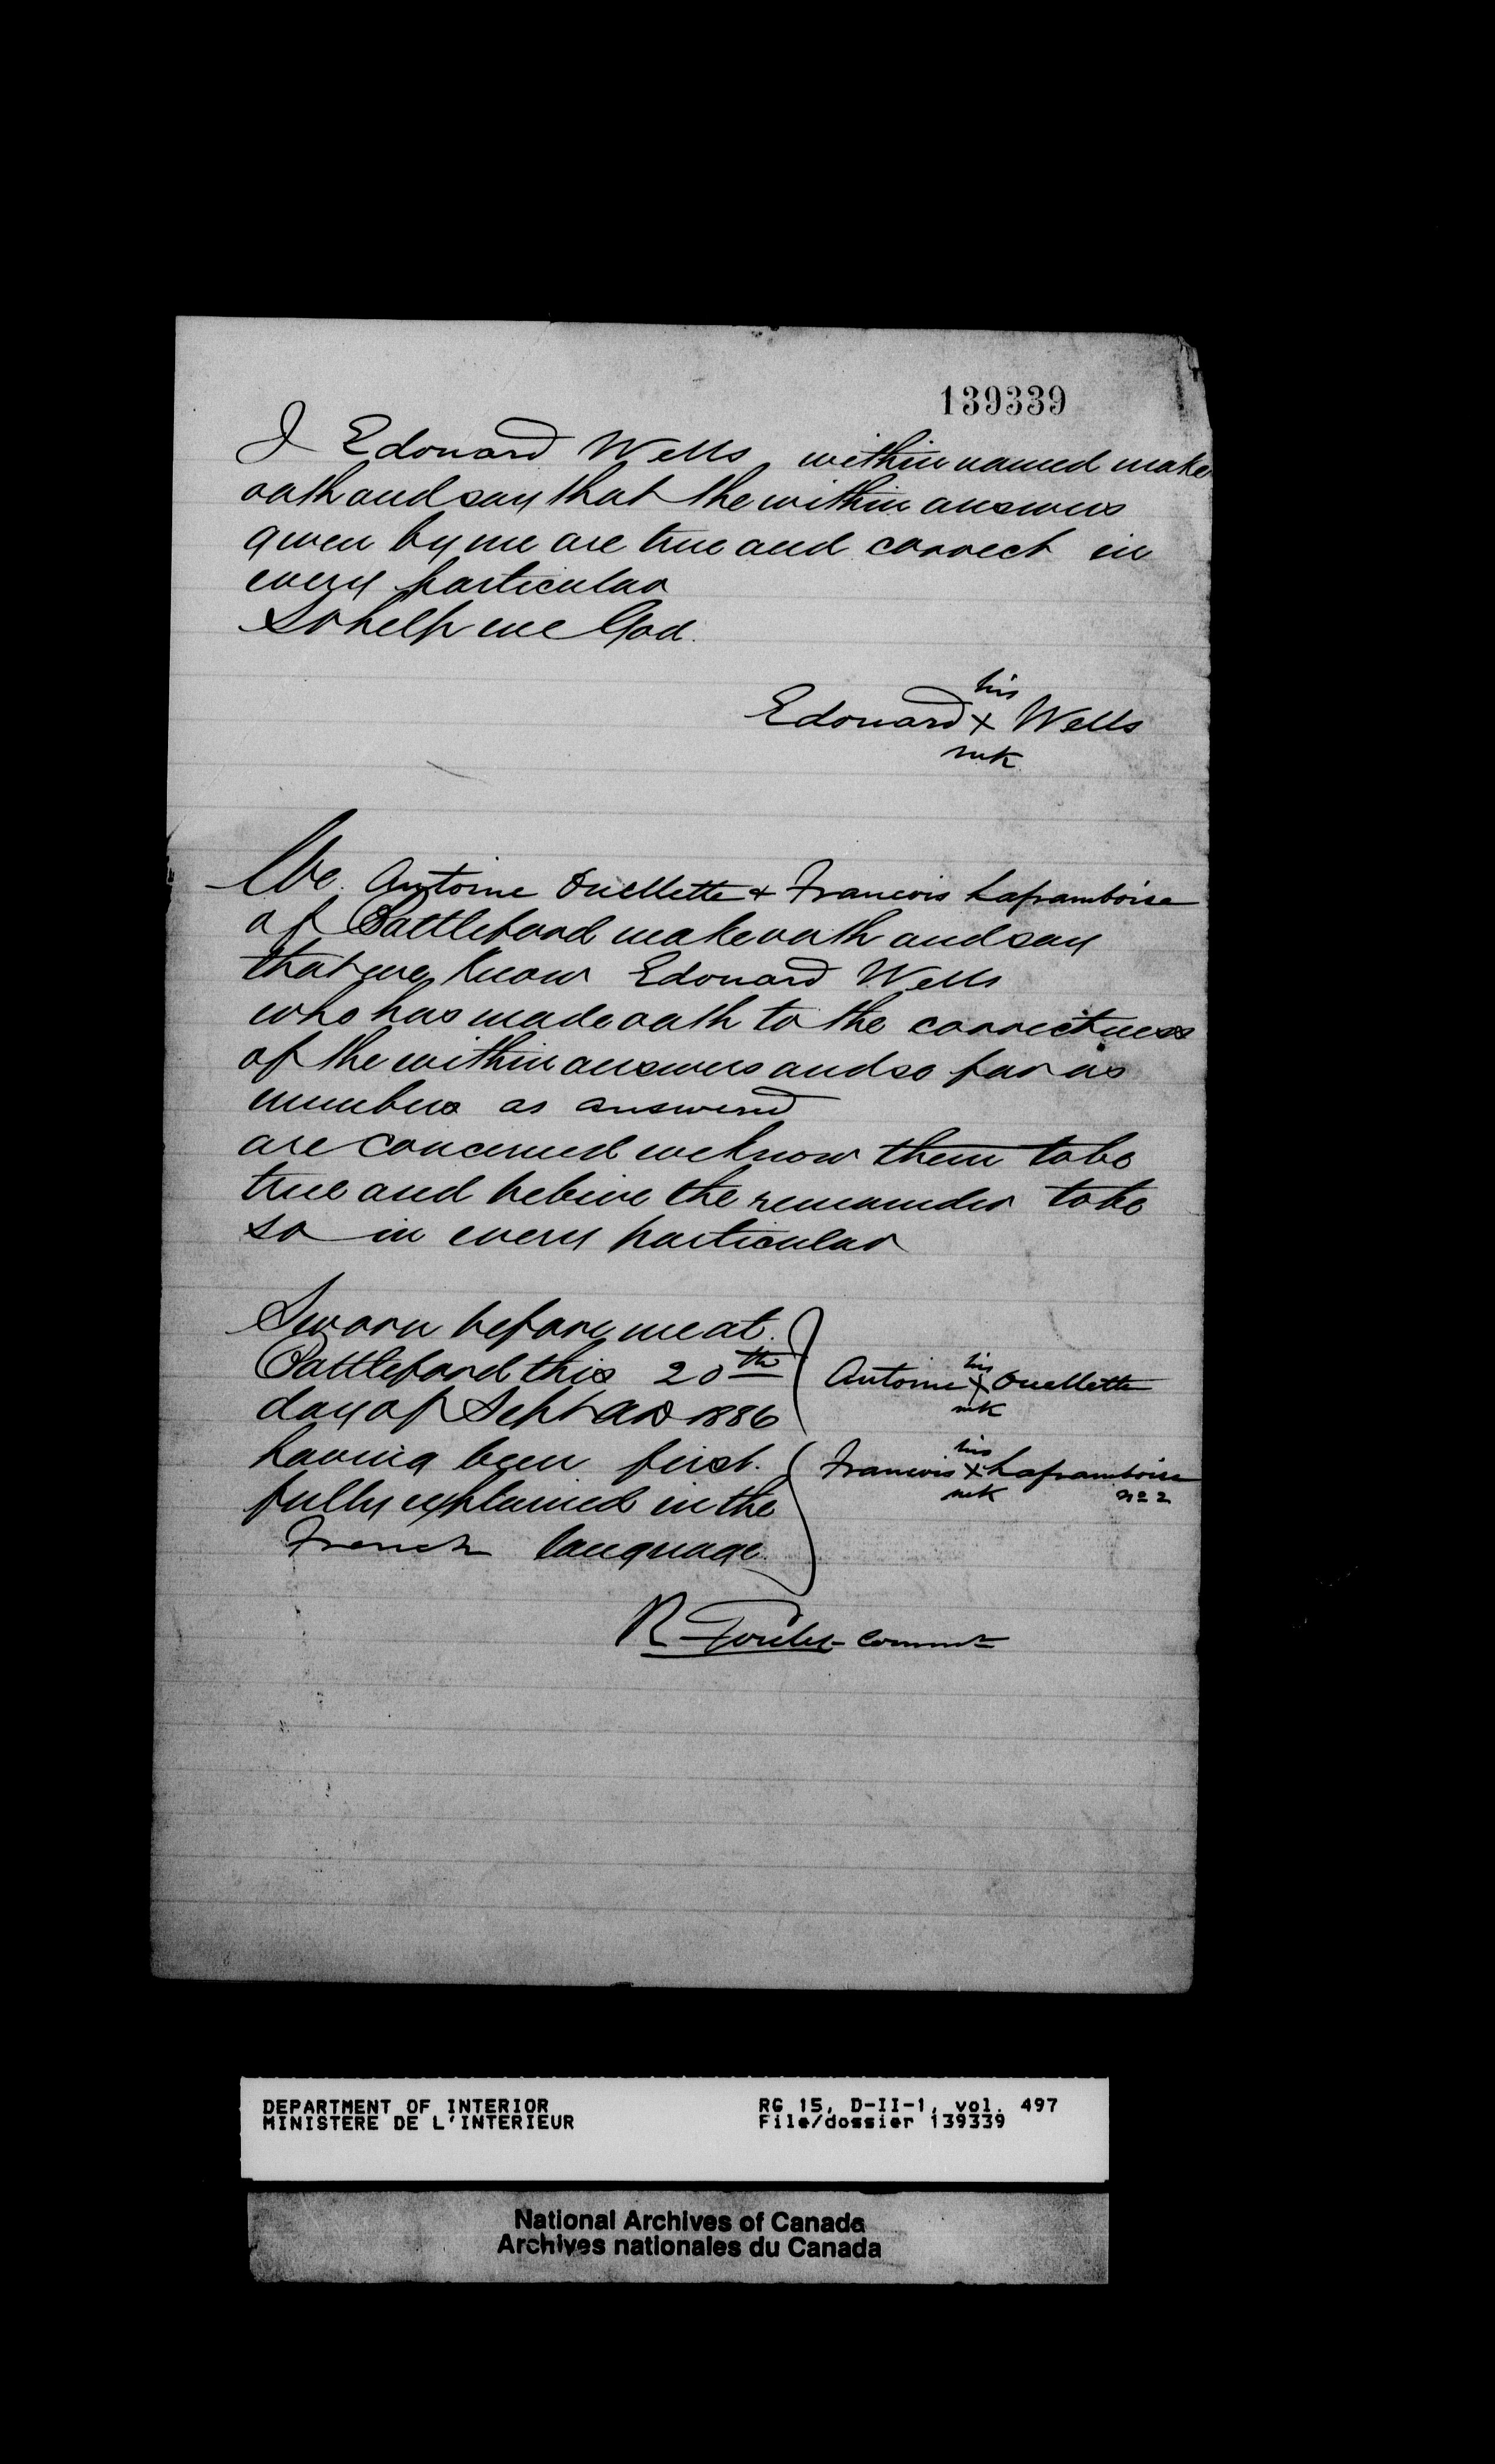 139339
I Edouard Wells within named make
oath and say that the within answers
given by me are true and correct in
every particular
So help me God.
his
Edouard X Wells
mk
We. Antoine Ouellette & Francois Laframboise
of Battleford make oath and say
that we know Edouard Wells
who has made oath to the correctness
of the within answers and so far as
numbers as answered
are concerned we know them to be
true and beleive the remainder to be
so in every particular
Sworn before me at.
Battleford this 20th
day of Sept AD 1886
having been first.
fully explained in the
French language.
his
Antoine X Ouellette
mk
his
Francois X Laframboise
mk no 2
R Goulet Commr
DEPARTMENT OF INTERIOR
MINISTERE DE L'INTERIEUR
RG 15, D-II-1, vol. 497
File/dossier 139339
National Archives of Canada
Archives nationales du Canada